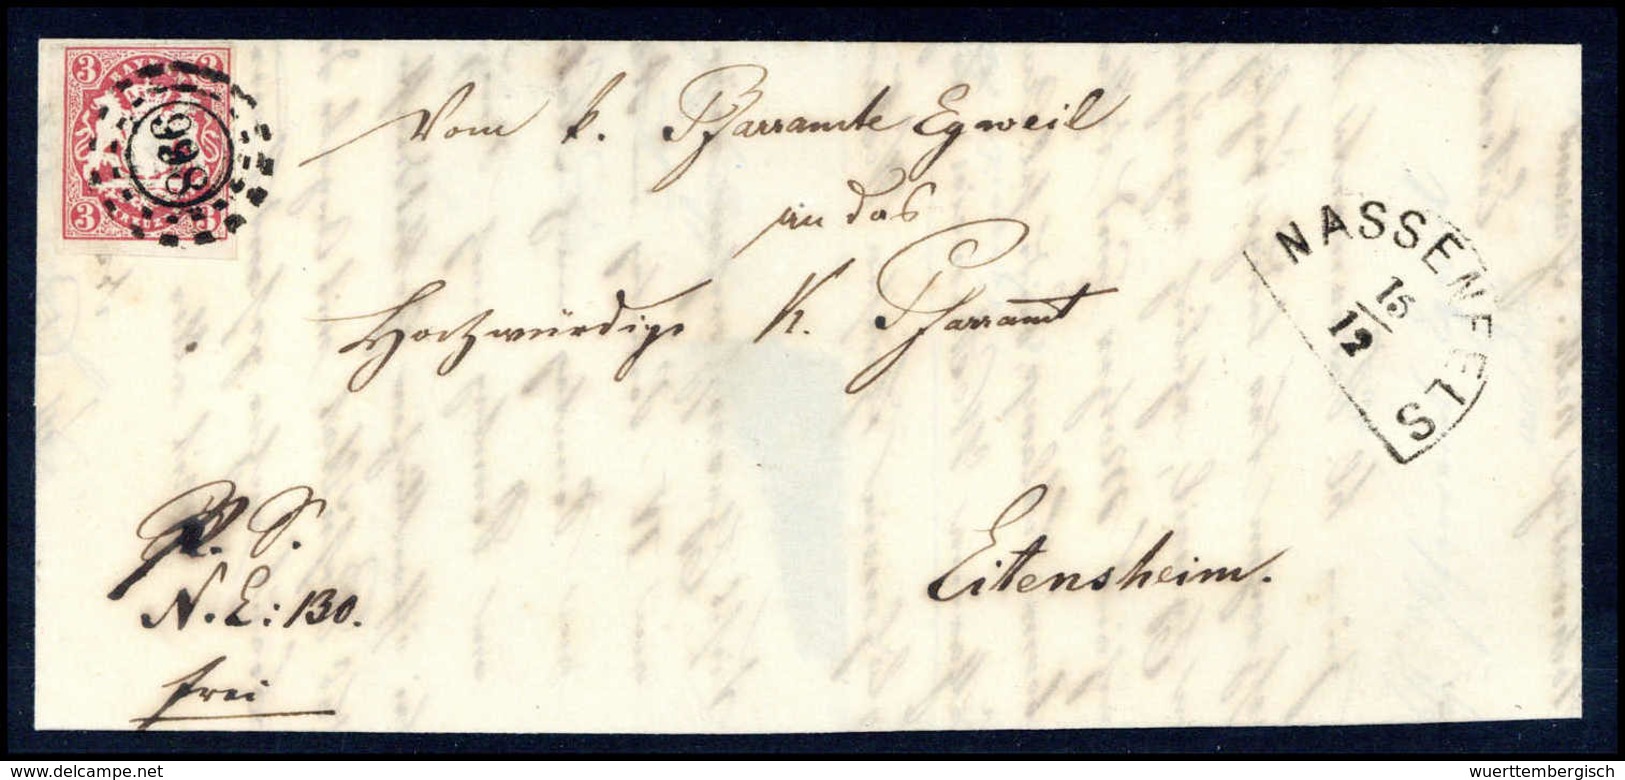 3 3
BAYERN
966
3 3
KREUZER
Vom k. Pfarramte Egweil
an das
Hochwürdige K. Pfarramt
NASSENFELS
15
12
Eitensheim.
P. S.
N. E: 130.
frei
www.delcampe.net
wuerttembergisch